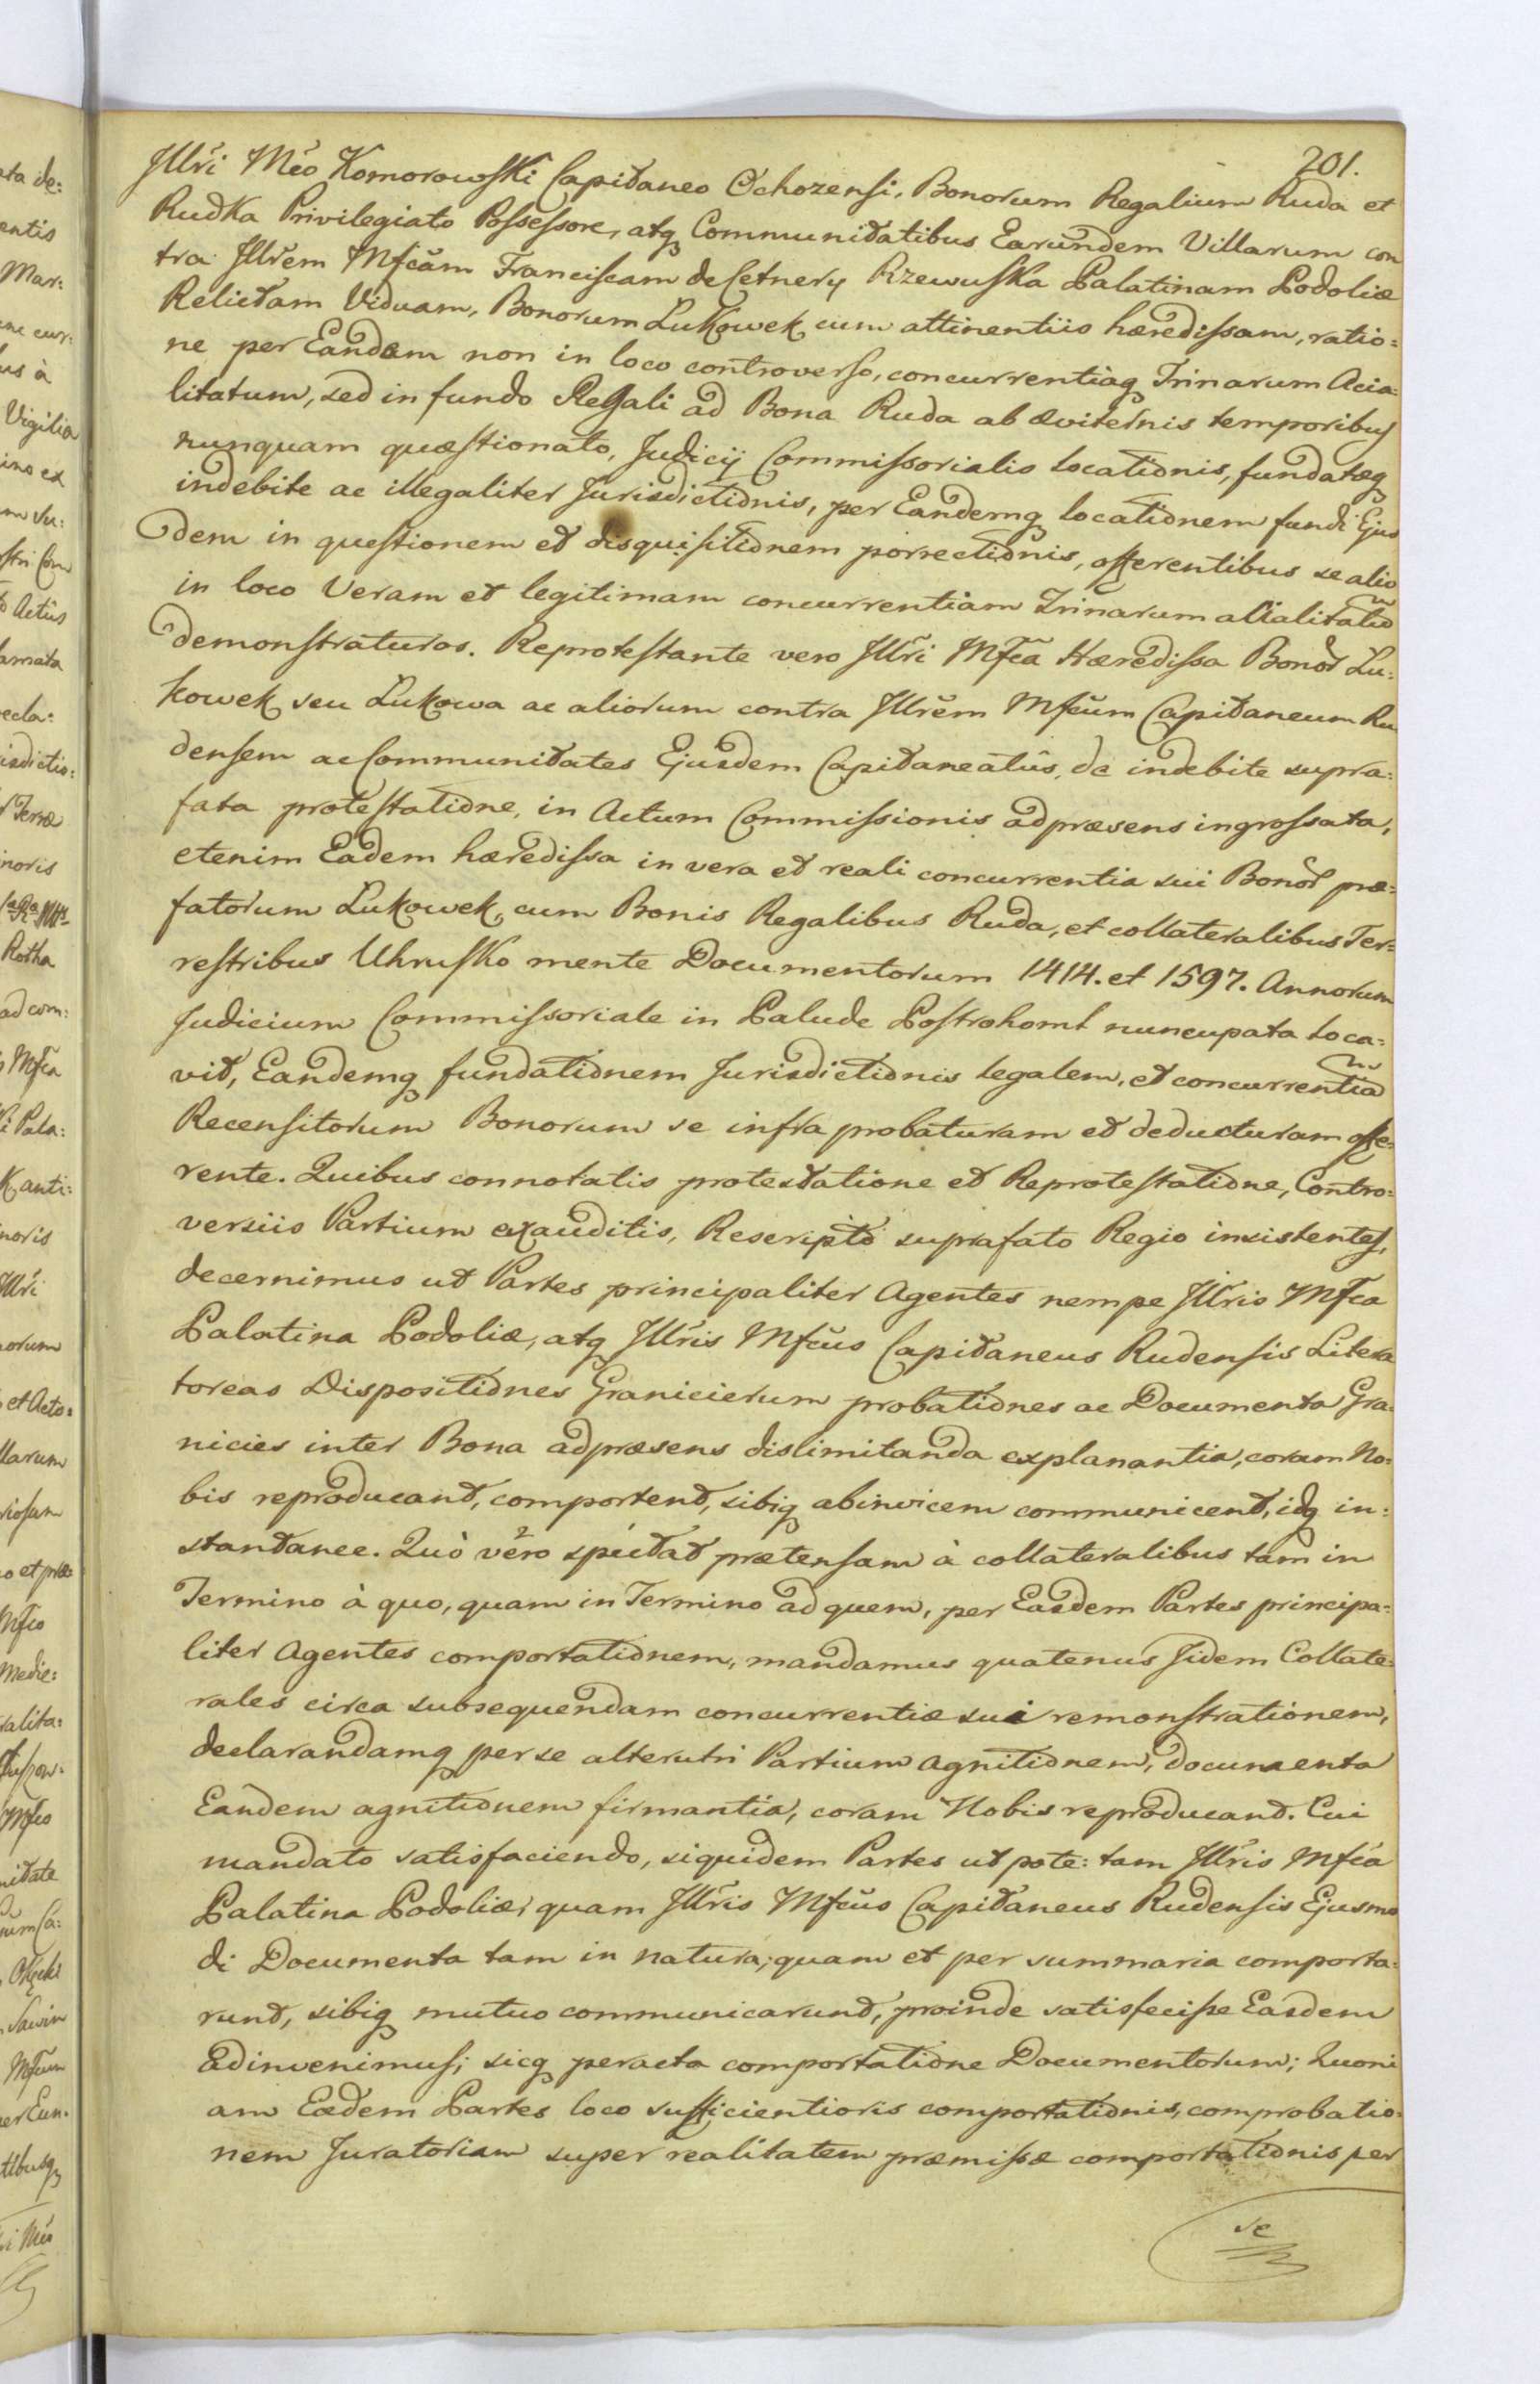 201.
Jllri Mco Komorowski Capitaneo Ochozensi, Bonorum Regalium Ruda et
Rudka Privilegiato Possessore, atq Communitatibus Earundem Villarum con
tra Jllrem Mfcam Franciscam de Cetnery Rzewuska Palatinam Podoliæ
Relictam Viduam, Bonorum Lukowek cum attinentiis hæredissam, ratio:
ne per Eandem non in loco controverso, concurrentiaq Trinarum Acia:
litatum, sed in fundo Regali ad Bona Ruda ab æviternis temporibus
nunquam quæstionato, Judicij Commissorialis locationis, fundatæq
indebite ac illegaliter Jurisdictionis, per Eandemq locationem fundi Ejus
dem in questionem et disquisitionem porrectionis, offerentibus se alio
in loco Veram et legitimam concurrentiam Trinarum alialitatu
demonstraturos. Reprotestante vero Jllri Mfca Hæredissa Bonor Lu:
kowek seu Lukowa ac aliorum contra Jllrem Mfcum Capitaneum Ru
densem ac Communitates Ejusdem Capitaneatûs, de indebite supra:
fata protestatione, in Actum Commissionis ad præsens ingrossata,
etenim Eadem hæredissa in vera et reali concurrentia sui Bonor præ:
fatorum Lukowek, cum Bonis Regalibus Ruda, et collateralibus Ter:
restribus Uhrusko mente Documentorum 1414. et 1597. Annorum
Judicium Commissoriale in Palude Postrohoml nuncupata loca:
vit, Eandemq fundationem Jurisdictionis legalem, et concurrentia
Recensitorum Bonorum se infra probaturam et deducturam offe:
rente. Quibus connotatis protestatione et Reprotestatione, Contro:
versiis Partium exauditis, Rescripto suprafato Regio insistentes,
decernimus ut Partes principaliter Agentes nempe Jllris Mfca
Palatina Podoliæ, atq Jllris Mfcus Capitaneus Rudensis Litera
toreas Dispositiones Granicierum probationes ac Documenta Gra:
nicies inter Bona ad præsens dislimitanda explanantia, coram No:
bis reproducant, comportent, sibiq abinvicem communicent, idq in:
stantanee. Quò vero spectat prætensam à collateralibus tam in
Termino à quo, quam in Termino ad quem, per Easdem Partes principa:
liter Agentes comportationem, mandamus quatenus Jidem Collate:
rales circa subsequendam concurrentiæ sui remonstrationem,
declarandamq per se alterutri Partium agnitionem, documenta
Eandem agnitionem firmantia, coram Nobis reproducant. Cui
mandato satisfaciendo, siquidem Partes utpote: tam Jllris Mfca
Palatina Podoliæ, quam Jllris Mfcus Capitaneus Rudensis Ejusmo
di Documenta tam in natura, quam et per summaria comporta:
runt, sibiq mutuo communicarunt, proinde satisfecisse Easdem
adinvenimus; sicq peracta comportatione Documentorum; Quoni
am Eædem Partes loco sufficientioris comportationis, comprobatio:
nem Juratoriam super realitatem præmissæ comportationis per
se